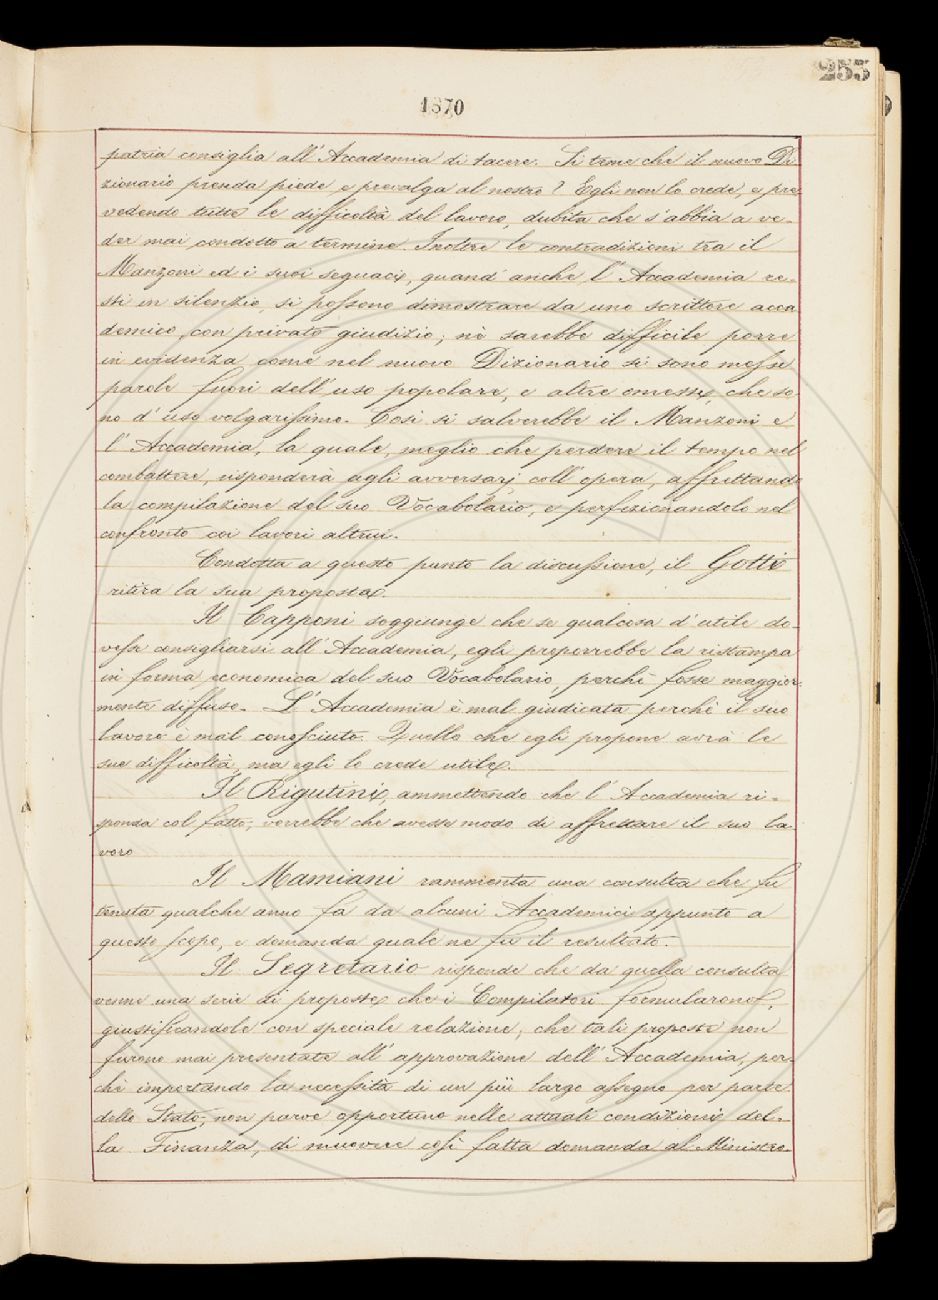 255
1870
patria consiglia all'Accademia di tacere. Si teme che il nuovo Di
zionario prenda piede e prevalga al nostro? Egli non lo crede, e pre
vedendo tutte le difficoltà del lavoro, dubita che s'abbia a ve-
der mai condotto a termine. Inoltre le contradizioni tra il
Manzoni ed i suoi seguaci, quand'anche l'Accademia re-
sti in silenzio, si possono dimostrare da uno scrittore acca
demico con privato giudizio; nè sarebbe difficile porre
in evidenza come nel nuovo Dizionario si sono messe
parole fuori dell'uso popolare, e altre omesse, che so
no d'uso volgarissimo. Così si salverebbe il Manzoni e
l'Accademia, la quale, meglio che perdere il tempo nel
combattere, risponderà agli avversarj coll'opera, affrettando
la compilazione del suo Vocabolario, e perfezionandolo nel
confronto coi lavori altrui.
Condotta a questo punto la discussione, il Gotti
ritira la sua proposta.
Il Capponi soggiunge che se qualcosa d'utile do-
vesse consigliarsi all'Accademia, egli proporrebbe la ristampa
in forma economica del suo Vocabolario, perchè fosse maggior-
mente diffuso. L'Accademia è mal giudicata perchè il suo
lavoro è mal conosciuto. Quello che egli propone avrà le
sue difficoltà, ma egli lo crede utile.
Il Rigutini, ammettendo che l'Accademia ri-
sponda col fatto, vorrebbe che avesse modo di affrettare il suo la-
voro
Il Mamiani rammenta una consulta che fu
tenuta qualche anno fa da alcuni Accademici appunto a
questo scopo, e domanda quale ne fu il resultato.
Il Segretario risponde che da quella consulta
venne una serie di proposte che i Compilatori formularono,
giustificandole con speciale relazione; che tali proposte non
furono mai presentate all'approvazione dell'Accademia, per-
chè importando la necessità di un più largo assegno per parte
dello Stato, non parve opportuno nelle attuali condizioni del-
la Finanza, di muovere così fatta domanda al Ministro.